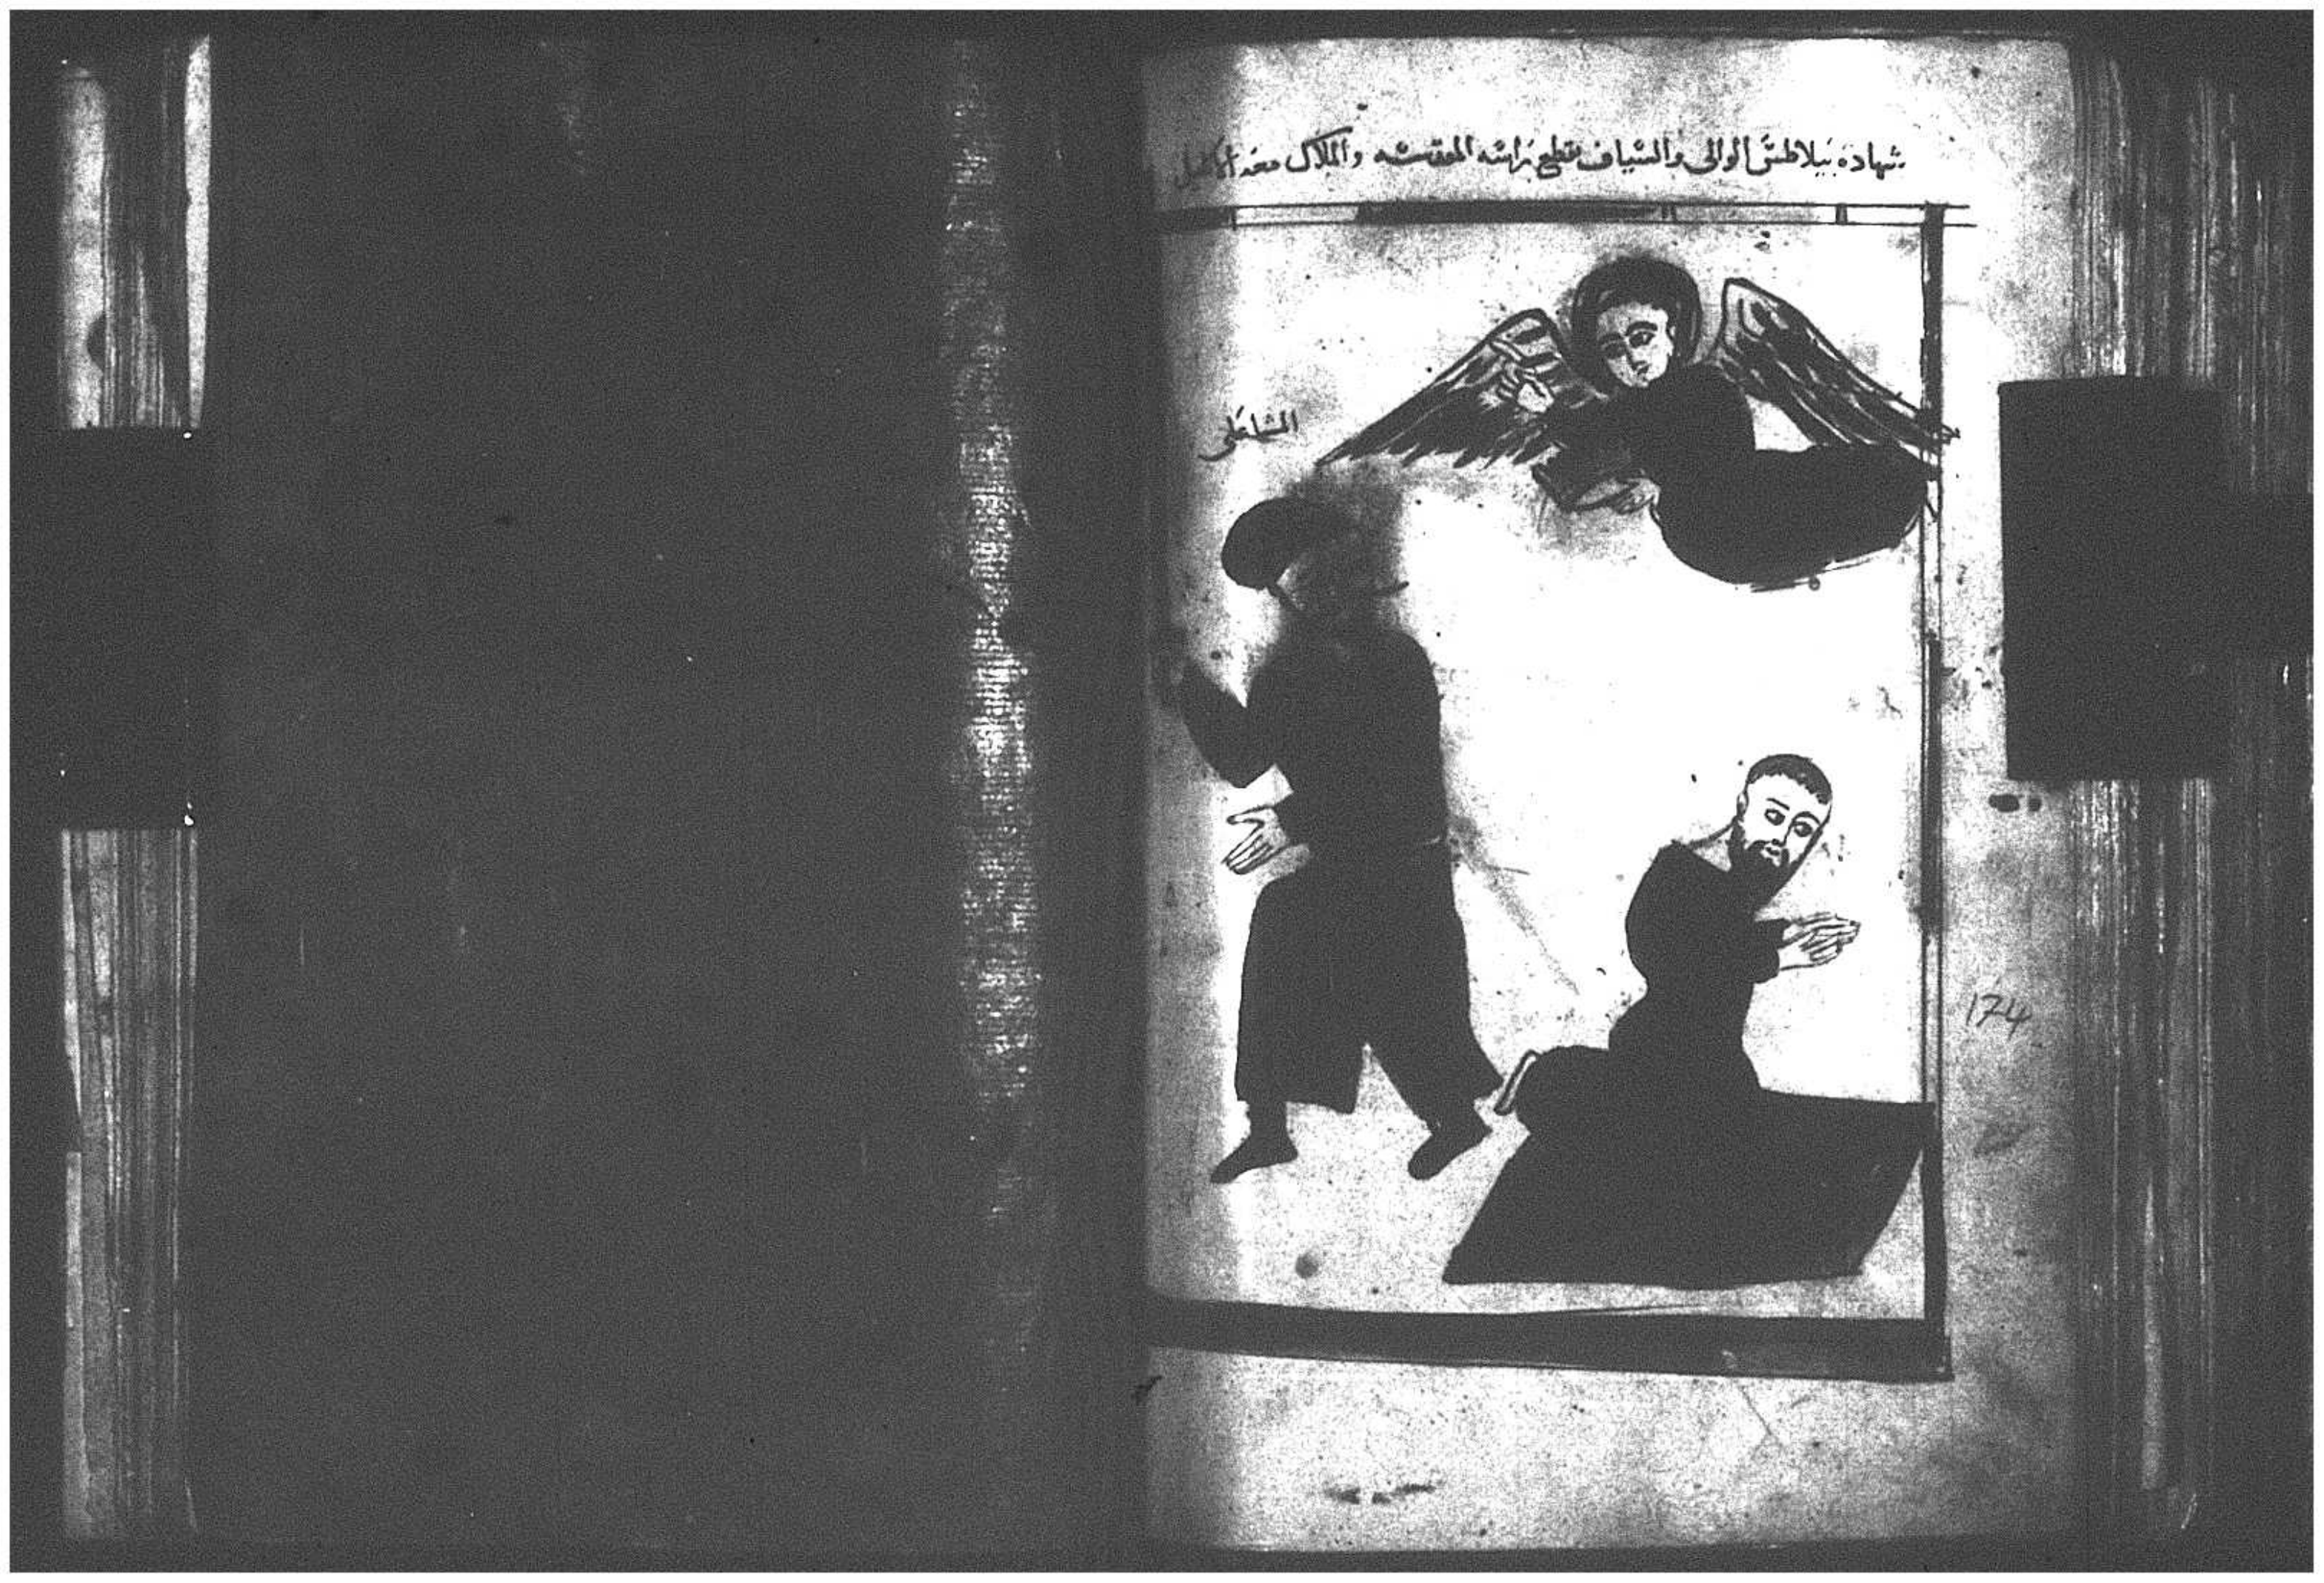 شهادة بيلاطس الوالى والسياف يقطع راسه المقدسه والملاك معه الاكليل
المشاعلى
174